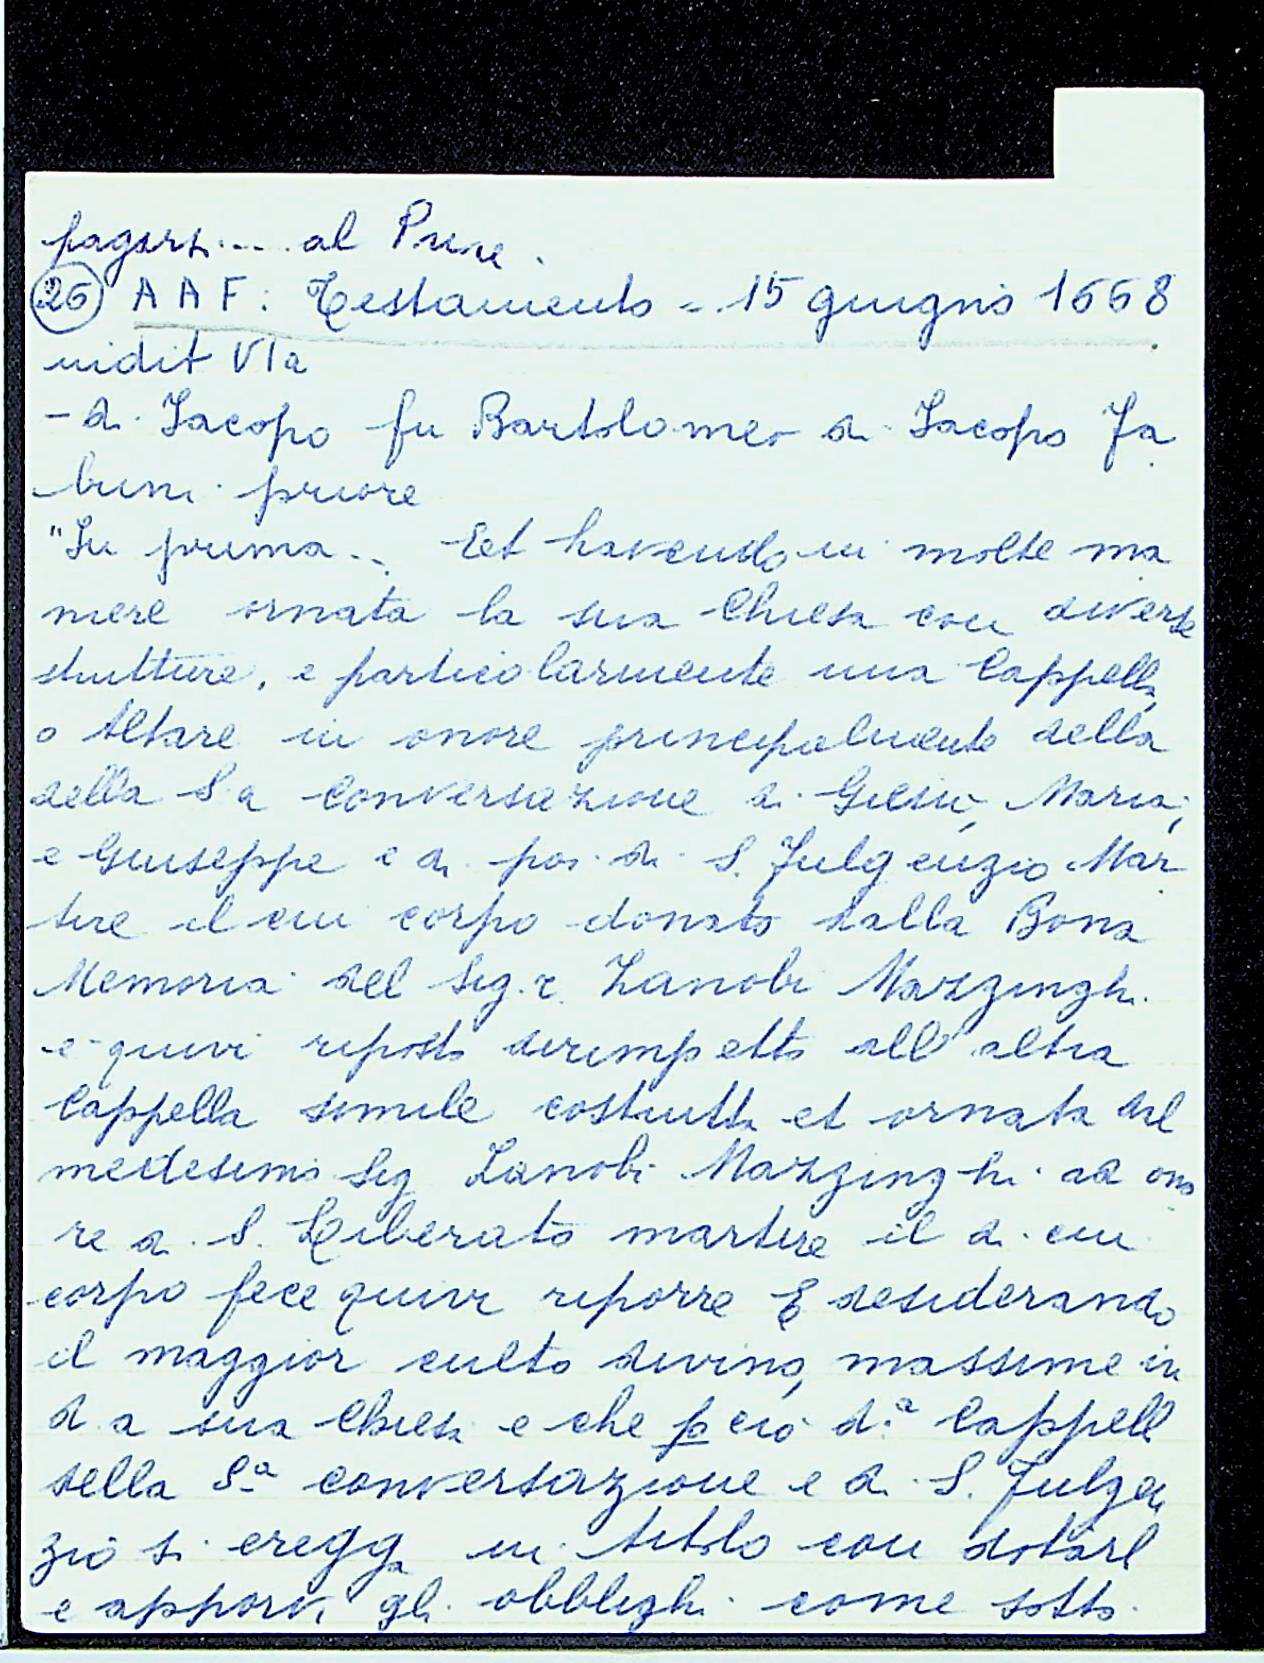 pagarsi.... al Priore.
26 AAF: Testamento = 15 giugno 1668
indit VIa
- di Jacopo fu Bartolomeo di Jacopo Fa
buni priore
"In prima.. Eet havendo in molte ma
niere ornata la sua Chiesa con diverse
strutture, e particolarmente una Cappella
o Altare in onore principalmente della
della S a Conversazione di Giesù, Maria,
e Giuseppe e di poi di S. Fulgenzio Mar
tire il cui corpo donato dalla Bona
Memoria del Sig.r Zanobi Mazzinghi
e quivi riposto dirimpetto all'altra
Cappella simile costrutta et ornata dal
medesimo Sig Zanobi Mazzinghi ad ono
re di S. Liberato martire il di cui
corpo fece quivi riporre E desiderando
il maggior culto divino, massime in
d a sua Chiesa e che p ciò d.a Cappell
della S.a conversazione e di S. Fulgen
zio si eregga in titolo con dotarl
e apporvi gli obblighi come sotto